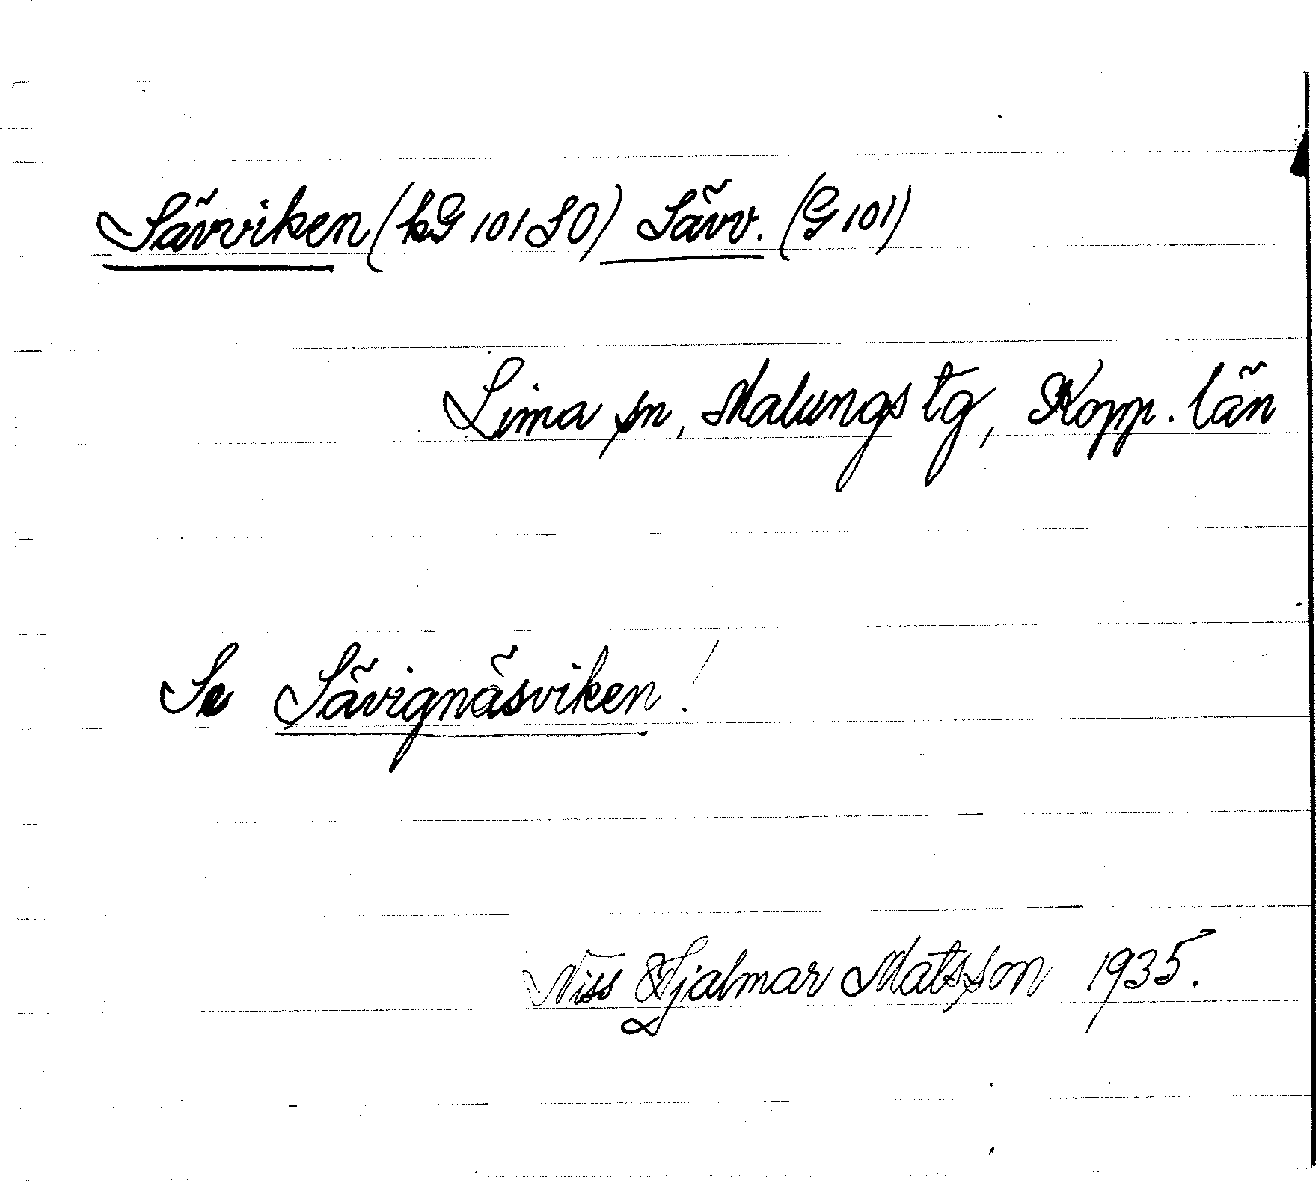 Sävviken (kG 101 SO) Sävv. (G 101)
Lima sn, Malungs tg, Kopp. län
Se Sävignäsviken!
Niss Hjalmar Matsson 1935.